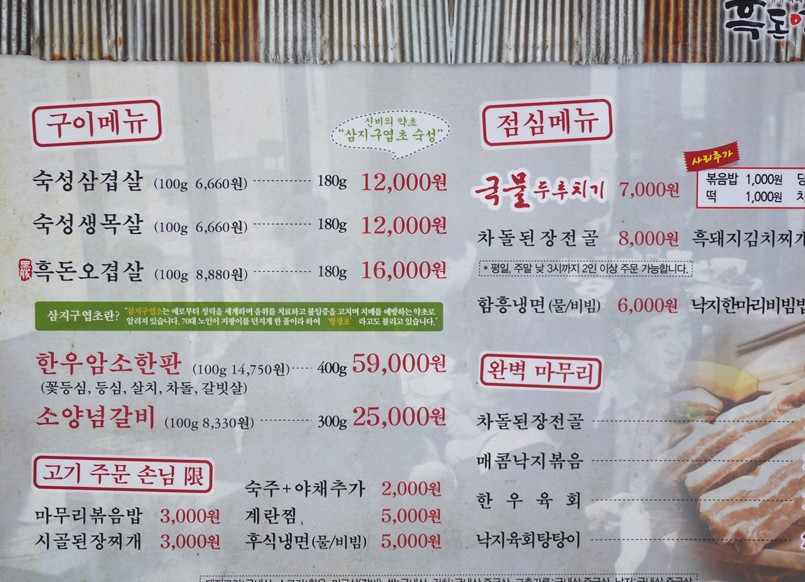 흑돈
구이메뉴
신비의 약초
"삼지구엽초 숙성"
숙성삼겹살 (100g 6,660원) 180g 12,000원
숙성생목살 (100g 6,660원) 180g 12,000원
흑돈오겹살 (100g 8,880원) 180g 16,000원
삼지구엽초란? "삼지구엽초는 예로부터 정력을 세게하며 음위를 치료하고 불임증을 고치며 치매를 예방하는 약초로
알려져 있습니다. 70대 노인이 지팡이를 던지게 한 풀이라 하여 '방장초' 라고도 불리고 있습니다."
한우암소한판 (100g 14,750원) 400g 59,000원
(꽃등심, 등심, 살치, 차돌, 갈빗살)
소양념갈비 (100g 8,330원) 300g 25,000원
고기 주문 손님 限
마무리볶음밥 3,000원
시골된장찌개 3,000원
숙주+야채추가 2,000원
계란찜 5,000원
후식냉면(물/비빔) 5,000원
점심메뉴
국물두루치기 7,000원
사리추가
볶음밥 1,000원
떡 1,000원
차돌된장전골 8,000원 흑돼지김치찌개
* 평일, 주말 낮 3시까지 2인 이상 주문 가능합니다.
함흥냉면(물/비빔) 6,000원 낙지한마리비빔밥
완벽 마무리
차돌된장전골
매콤낙지볶음
한우육회
낙지육회탕탕이